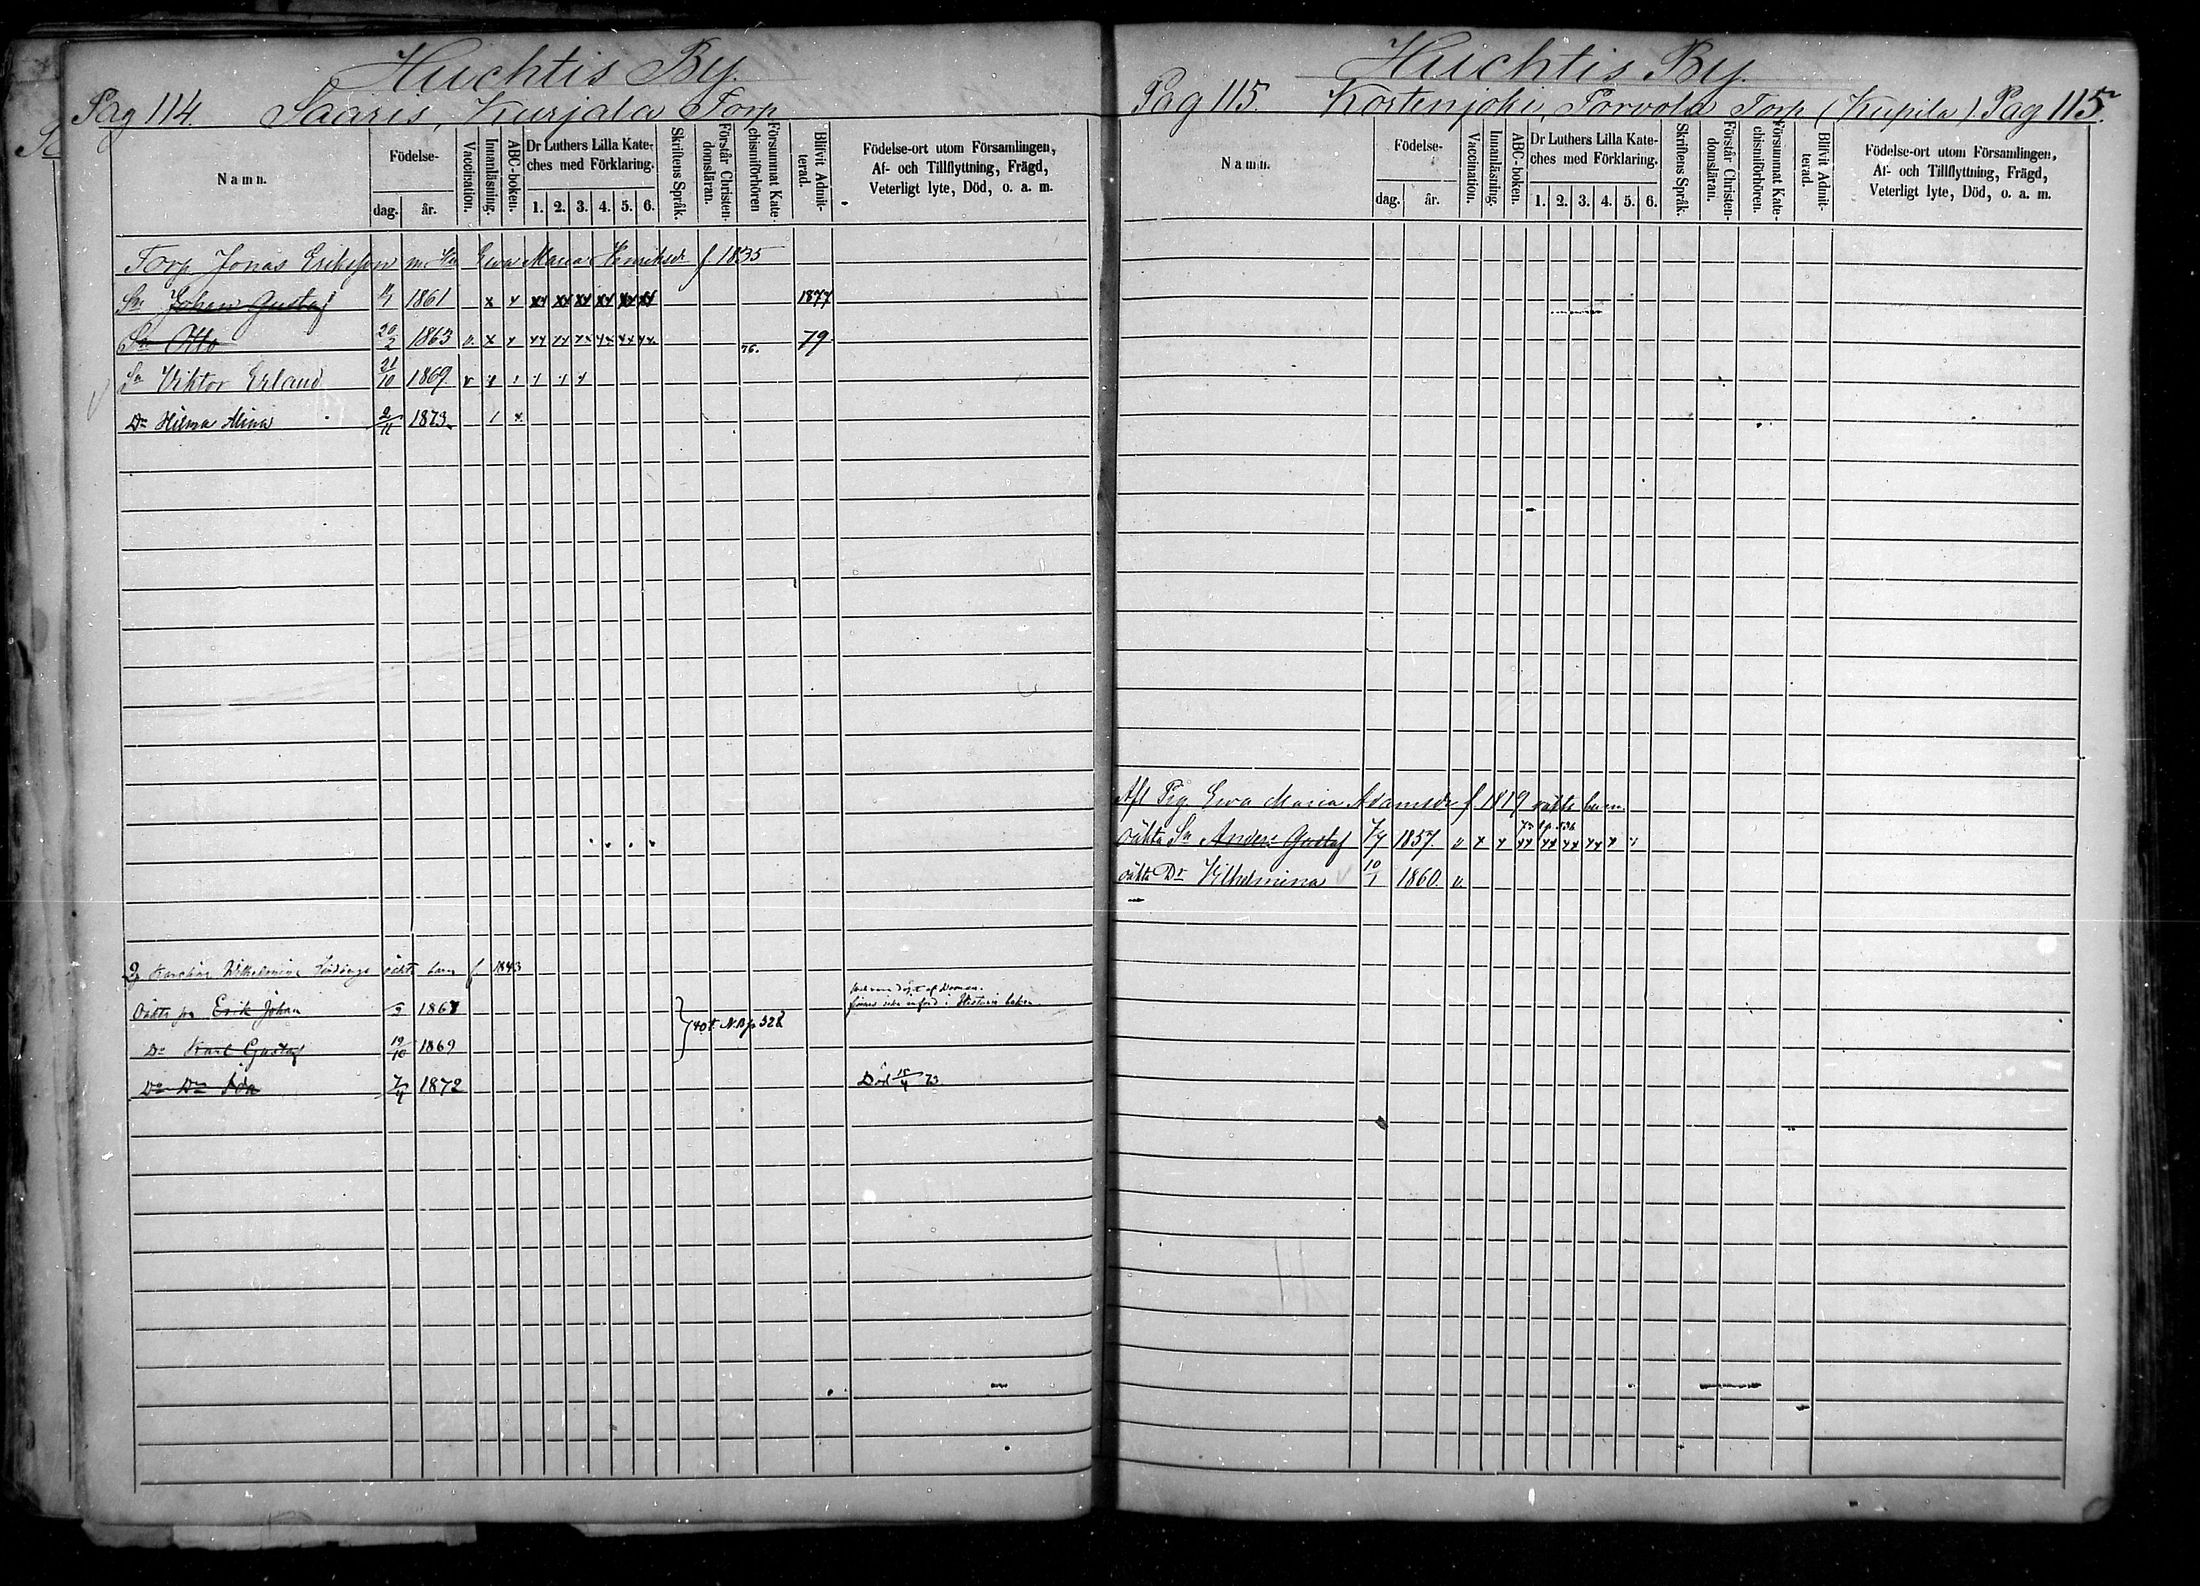 Huchtis By.
Pag 114. Saaris, Kurjala Torp
Namn.
Födelse-
dag. år.
Vaccination.
Innanläsning.
ABC-boken.
Dr Luthers Lilla Kateches med Förklaring.
1. 2. 3. 4. 5. 6.
Skriftens Språk.
Förstår Christendomsläran.
Försummat Katechismiförhören
Blifvit Admitterad.
Födelse-ort utom Församlingen,
Af- och Tillflyttning, Frägd,
Veterligt lyte, Död, o. a. m.
Torp Jonas Eriksson m. Hu Ewa Maria Henriksdr f 1835
Sn Johan Gustaf 1861 x x xx xx xx xx xx xx 1877
Sn Otto 20/2 1863 v. x x xx xx xx xx xx xx 76. 79.
Sn Viktor Erland 21/10 1869. v
Dr Hilma Mina 2/11 1873.
Karolina Wilhelmina oäkta barn f. 1843
Oäkta sn Erik Johan 1867
Dn Karl Gustaf 19/10 1869
Dn Dr Ida 7/4 1872 Död 15/4 73
Huchtis By.
Pag 115. Kortenjoki, Porvola Torp (Kupila). Pag 115.
Namn.
Födelse-
dag. år.
Vaccination.
Innanläsning.
ABC-boken.
Dr Luthers Lilla Kateches med Förklaring.
1. 2. 3. 4. 5. 6.
Skriftens Språk.
Förstår Christendomsläran.
Försummat Katechismiförhören.
Blifvit Admitterad.
Födelse-ort utom Församlingen,
Af- och Tillflyttning, Frägd,
Veterligt lyte, Död, o. a. m.
Afl Pig Ewa Maria Adamsdr f 1819 oäkta barn.
oäkta Sn Anders Gustaf 7/4 1857. v x x xx xx xx xx x
oäkta Dr Vilhelmina 10/1 1860. v.